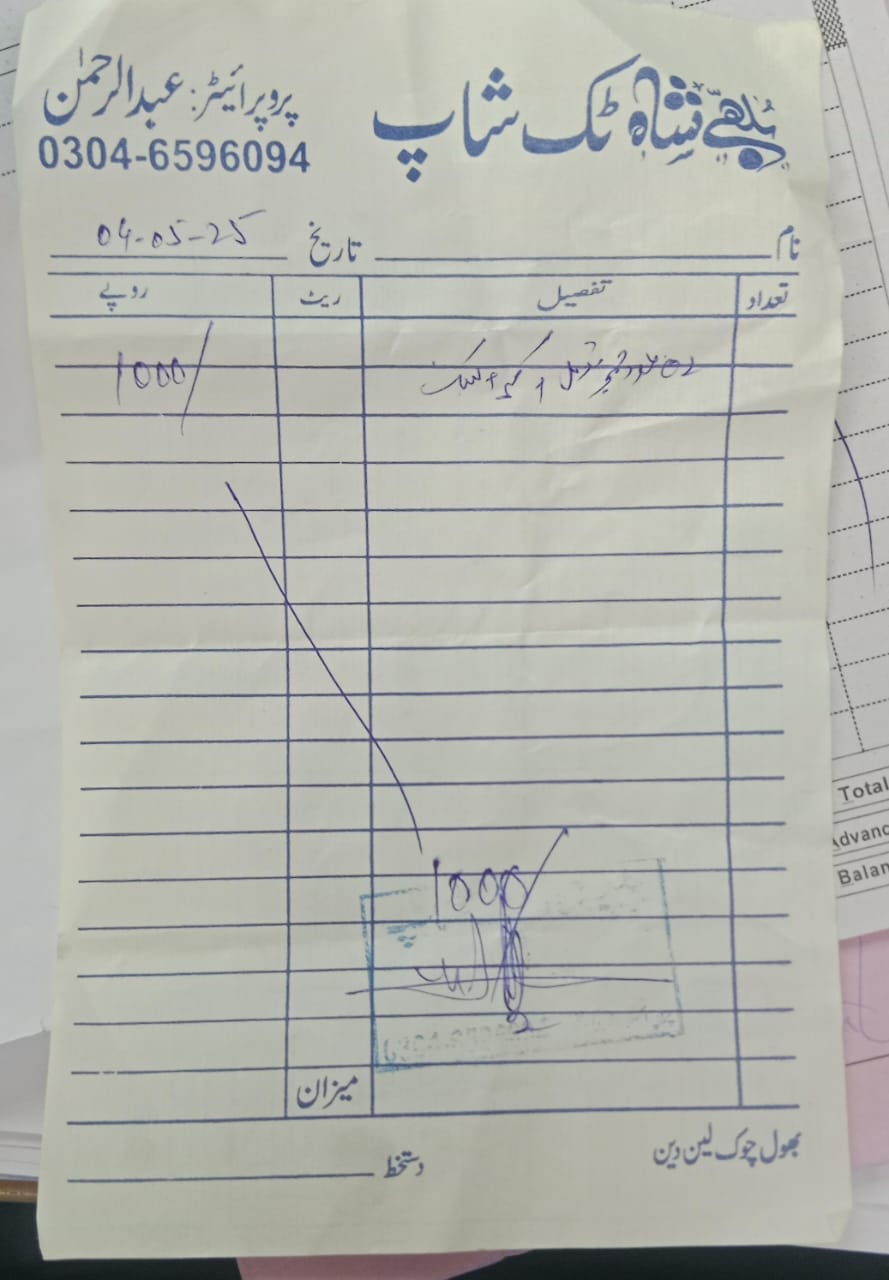 بلھے شاہ ٹک شاپ
پروپرائیٹر: عبدالرحمٰن
0304-6596094
نام تاریخ 04-05-25
تعداد تفصیل ریٹ روپے
1000/
1000
میزان
بھول چوک لین دین
دستخط
Total
Advanc
Balan